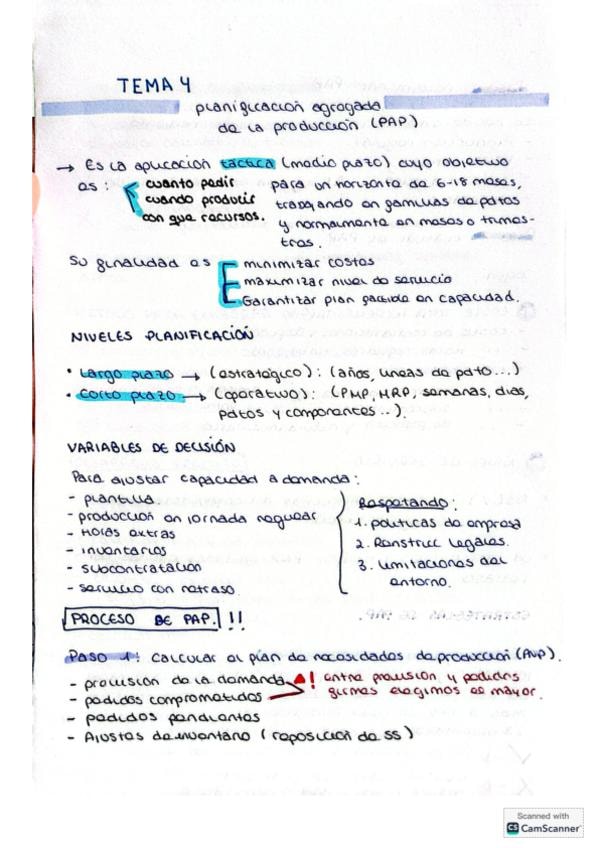 TEMA 4
planificación agregada
de la producción (PAP)
→ Es la aplicación táctica (medio plazo) cuyo objetivo
es: cuanto pedir para un horizonte de 6-18 meses,
cuando producir trabajando en familias de pdtos
con que recursos. y normalmente en meses o trimes-
tres.
Su finalidad es minimizar costos
maximizar nivel de servicio
Garantizar plan factible en capacidad.
NIVELES PLANIFICACIÓN
• Largo plazo → (estratégico): (años, líneas de pdto...)
• Corto plazo → (operativo): (PMP, MRP, semanas, días,
pdtos y componentes..).
VARIABLES DE DECISIÓN
Para ajustar capacidad a demanda:
- plantilla
- producción en jornada regular
- Horas extras
- inventarios
- subcontratación
- servicio con retraso
Respetando:
1. políticas de empresa
2. Renstricc legales.
3. limitaciones del
entorno.
PROCESO DE PAP. !!
PASO 1: CALCULAR el plan de necesidades de producción (PNP).
- previsión de la demanda
- pedidos comprometidos
! entre previsión y pedidos
firmes elegimos el mayor.
- pedidos pendientes
- Ajustes de inventario (reposición de SS)
Scanned with
CS CamScanner